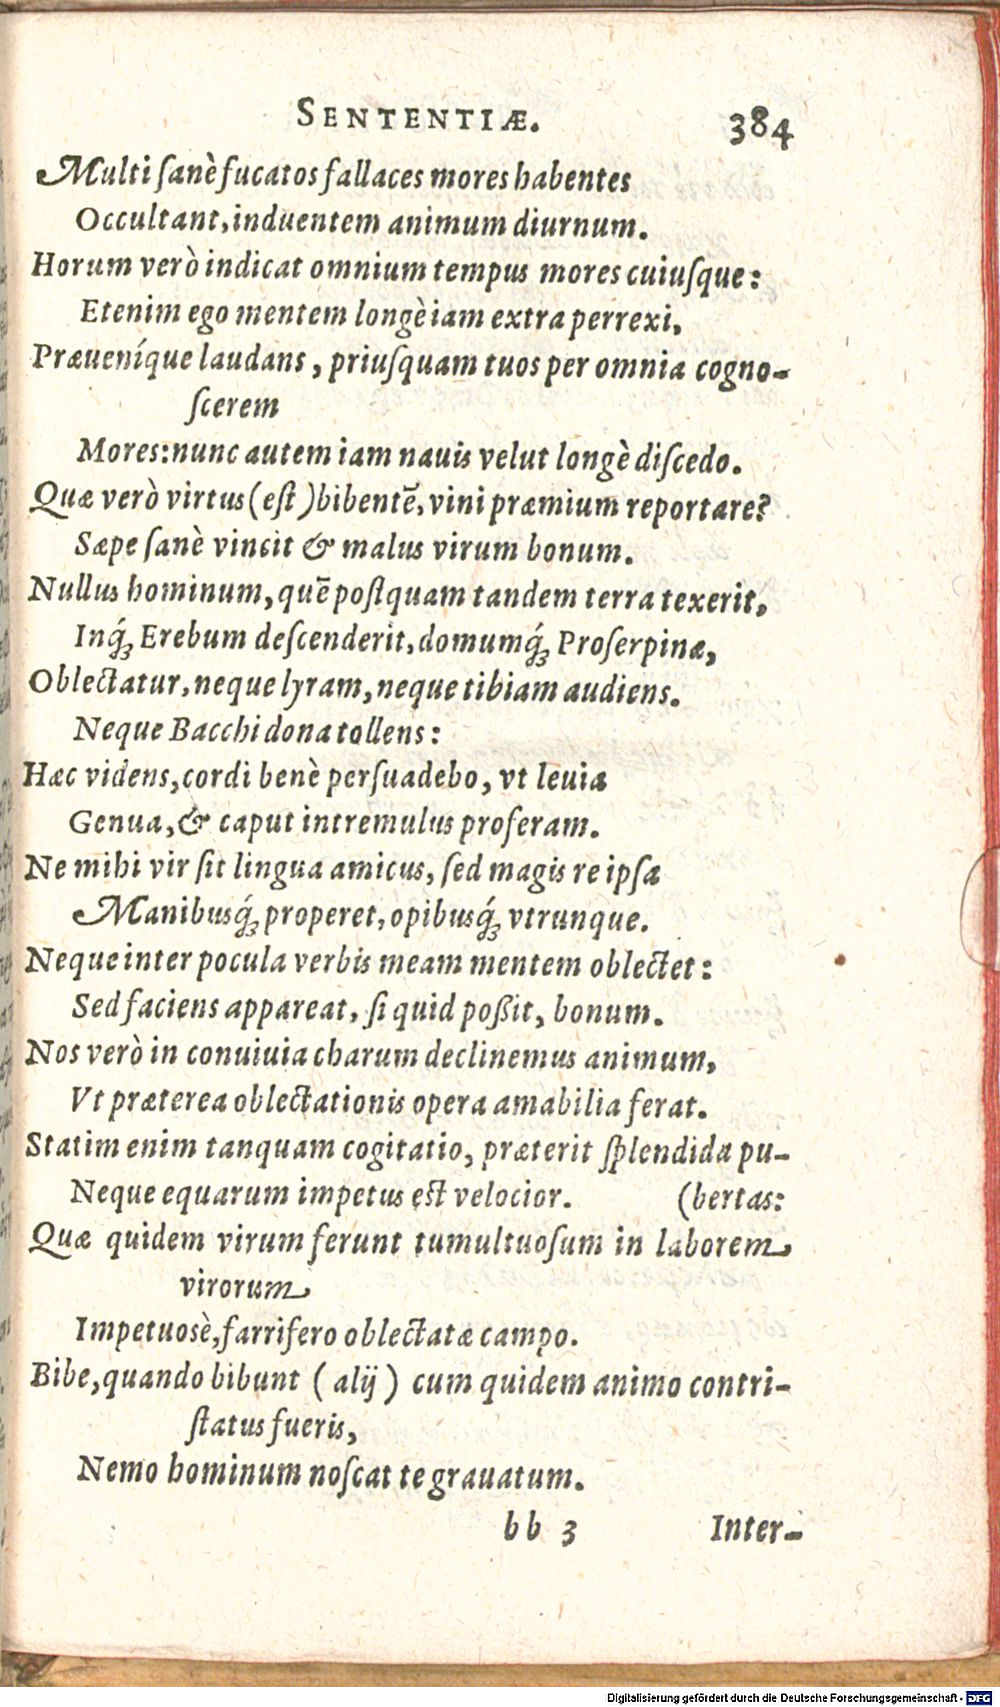 SENTENTIÆ. 384
Multi ſanè fucatos fallaces mores habentes
Occultant, induentem animum diurnum.
Horum verò indicat omnium tempus mores cuiuſque:
Etenim ego mentem longè iam extra perrexi,
Præueníque laudans, priuſquam tuos per omnia cogno-
ſcerem
Mores: nunc autem iam nauis velut longè diſcedo.
Quæ verò virtus (eſt) bibentē, vini præmium reportare?
Sæpe ſanè vincit & malus virum bonum.
Nullus hominum, quē poſtquam tandem terra texerit,
Inq́ꝫ Erebum deſcenderit, domumq́ꝫ Proſerpinæ,
Oblectatur, neque lyram, neque tibiam audiens.
Neque Bacchi dona tollens:
Hæc videns, cordi benè perſuadebo, vt leuia
Genua, & caput intremulus proferam.
Ne mihi vir ſit lingua amicus, ſed magis re ipſa
Manibusq́ꝫ properet, opibusq́ꝫ vtrunque.
Neque inter pocula verbis meam mentem oblectet:
Sed faciens appareat, ſi quid poßit, bonum.
Nos verò in conuiuia charum declinemus animum,
Vt præterea oblectationis opera amabilia ferat.
Statim enim tanquam cogitatio, præterit ſplendida pu-
Neque equarum impetus eſt velocior. (bertas:
Quæ quidem virum ferunt tumultuoſum in laborem
virorum
Impetuosè, farrifero oblectatæ campo.
Bibe, quando bibunt (alij) cum quidem animo contri-
ſtatus fueris,
Nemo hominum noſcat te grauatum.
bb 3 Inter-
Digitalisierung gefördert durch die Deutsche Forschungsgemeinschaft - DFG